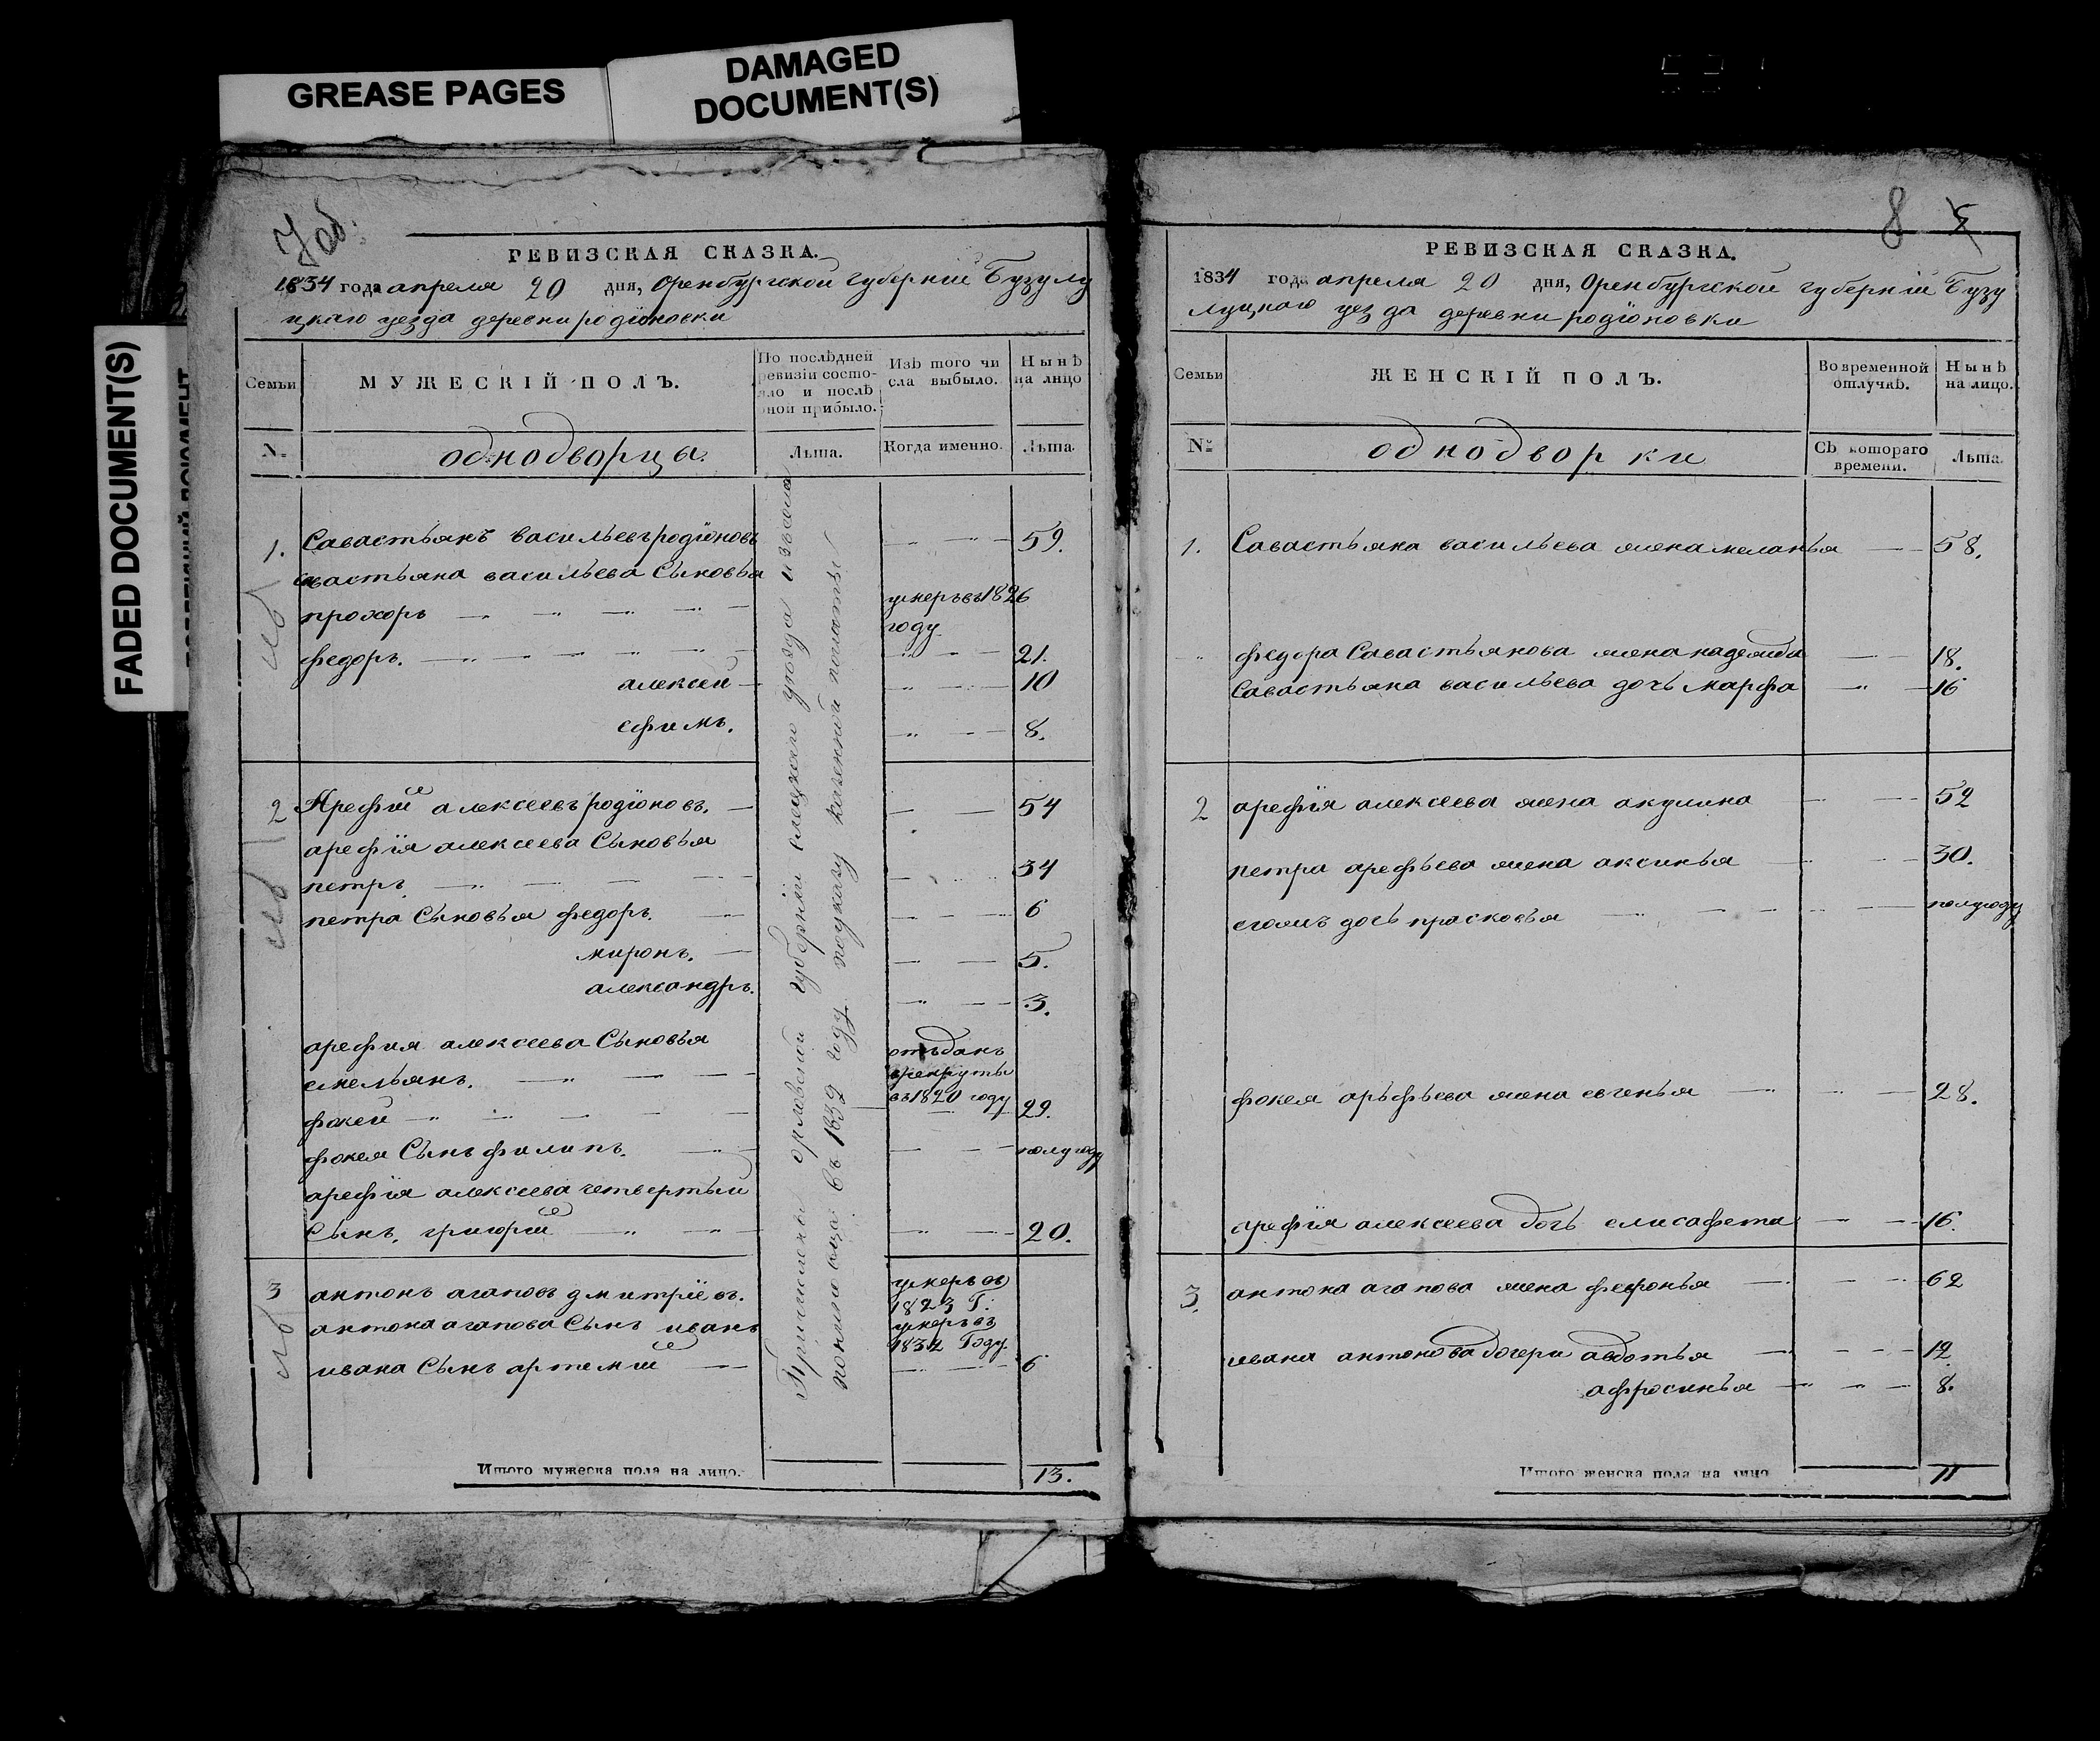 GREASE PAGES
DAMAGED
DOCUMENT(S)
FADED DOCUMENT(S)
РЕВИЗСКАЯ СКАЗКА.
1834 года апреля 20 дня, Оренбургской губерніи Бузулу
цкаго уезда деревни родїоновки
Семьи
МУЖЕСКІЙ ПОЛЪ.
По послѣдней
ревизіи состо-
яло и послѣ
оной прибыло.
Изъ того чи
сла выбыло.
Нынѣ
на лицо
№
однодворцы.
Лѣта.
Когда именно.
Лѣта.
1. Савастьянъ васильевъ родїоновъ 59.
савастьяна васильева Сыновья
прохоръ умеръ въ 1826
году
федоръ. 21.
алексей 10
ефимъ. 8.
2 Арефій алексеевъ родїоновъ. 54
арефїя алексеева Сыновья
петръ 34
петра Сыновья федоръ. 6
миронъ. 5.
александръ. 3.
арефия алексеева Сыновья
емельянъ. отъданъ
врекруты
въ 1820 году
фокей 29.
фокея Сынъ филипъ. полугоду
арефїя алексеева четвертый
Сынъ, григорій 20.
3 антонъ агаповъ дмитрїевъ. умеръ въ
1823 Г:
антона агапова Сынъ иванъ умеръ въ
1832 Году
ивана Сынъ артемій 6
Причислены орловской губерніи елецкаго уезда
въ 1832 году поуказу казенной палаты
Итого мужеска пола на лицо. 13.
8
РЕВИЗСКАЯ СКАЗКА.
1834 года апреля 20 дня, Оренбургской губерніи Бузу
луцкаго уезда деревни родїоновки
Семьи
ЖЕНСКІЙ ПОЛЪ.
Во временной
отлучкѣ.
Нынѣ
на лицо.
№
однодворки
Съ котораго
времени.
Лѣта.
1. Савастьяна васильева жена меланья 58.
федора Савастьянова жена надежда 18.
Савастьяна васильева дочь марфа 16
2 арефїя алексеева жена акулина 52
петра арефьева жена аксинья 30.
егожъ дочь прасковья полугоду
фокея арефьева жена евгенья 28.
арефїя алексеева дочь елисафета 16.
3. антона агапова жена фефронья 62
ивана антонова дочери авдотья 12
афросинья 8.
Итого женска пола на лицо 11